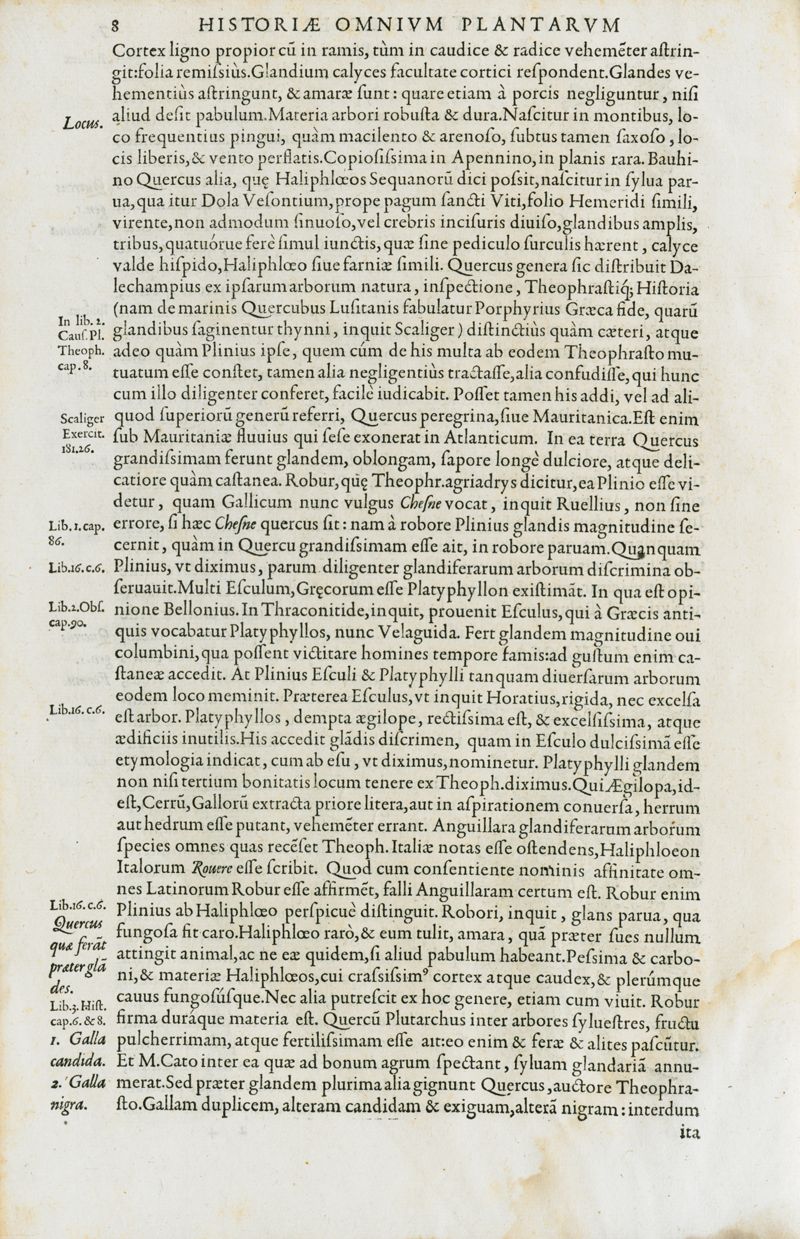 8 HISTORIÆ OMNIVM PLANTARVM
Cortex ligno propior cũ in ramis, tùm in caudice & radice vehemẽter aſtrin-
git: folia remiſsiùs. Glandium calyces facultate cortici reſpondent. Glandes ve-
hementiùs aſtringunt, & amaræ ſunt: quare etiam à porcis negliguntur, niſi
Locus.
aliud deſit pabulum. Materia arbori robuſta & dura. Naſcitur in montibus, lo-
co frequentius pingui, quàm macilento & arenoſo, ſubtus tamen ſaxoſo, lo-
cis liberis, & vento perflatis. Copioſiſsima in Apennino, in planis rara. Bauhi-
no Quercus alia, quę Haliphlœos Sequanorũ dici poſsit, naſcitur in ſylua par-
ua, qua itur Dola Veſontium, prope pagum ſancti Viti, folio Hemeridi ſimili,
virente, non admodum ſinuoſo, vel crebris inciſuris diuiſo, glandibus amplis,
tribus, quatuórue ferè ſimul iunctis, quæ ſine pediculo ſurculis hærent, calyce
valde hiſpido, Haliphlœo ſiue farniæ ſimili. Quercus genera ſic diſtribuit Da-
lechampius ex ipſarum arborum natura, inſpectione, Theophraſtiq́; Hiſtoria
(nam de marinis Quercubus Luſitanis fabulatur Porphyrius Græca fide, quarũ
In lib. 2.
Cauſ. Pl.
Theoph.
cap. 8.
glandibus ſaginentur thynni, inquit Scaliger) diſtinctiùs quàm cæteri, atque
adeo quàm Plinius ipſe, quem cúm de his multa ab eodem Theophraſto mu-
tuatum eſſe conſtet, tamen alia negligentiùs tractaſſe, alia confudiſſe, qui hunc
cum illo diligenter conferet, facilè iudicabit. Poſſet tamen his addi, vel ad ali-
Scaliger
Exercit.
181.26.
quod ſuperiorũ generũ referri, Quercus peregrina, ſiue Mauritanica. Eſt enim
ſub Mauritaniæ fluuius qui ſeſe exonerat in Atlanticum. In ea terra Quercus
grandiſsimam ferunt glandem, oblongam, ſapore longè dulciore, atque deli-
catiore quàm caſtanea. Robur, quę Theophr. agriadrys dicitur, ea Plinio eſſe vi-
detur, quam Gallicum nunc vulgus Cheſne vocat, inquit Ruellius, non ſine
Lib. 1. cap.
86.
errore, ſi hæc Cheſne quercus ſit: nam à robore Plinius glandis magnitudine ſe-
cernit, quàm in Quercu grandiſsimam eſſe ait, in robore paruam. Quanquam
Lib. 16. c. 6.
Plinius, vt diximus, parum diligenter glandiferarum arborum diſcrimina ob-
ſeruauit. Multi Eſculum, Gręcorum eſſe Platyphyllon exiſtimãt. In qua eſt opi-
Lib. 2. Obſ.
cap. 90.
nione Bellonius. In Thraconitide, inquit, prouenit Eſculus, qui à Græcis anti-
quis vocabatur Platyphyllos, nunc Velaguida. Fert glandem magnitudine oui
columbini, qua poſſent victitare homines tempore famis: ad guſtum enim ca-
ſtaneæ accedit. At Plinius Eſculi & Platyphylli tanquam diuerſarum arborum
eodem loco meminit. Præterea Eſculus, vt inquit Horatius, rigida, nec excelſa
Lib. 16. c. 6.
eſt arbor. Platyphyllos, dempta ægilope, rectiſsima eſt, & excelſiſsima, atque
ædificiis inutilis. His accedit glãdis diſcrimen, quam in Eſculo dulciſsimã eſſe
etymologia indicat, cum ab eſu, vt diximus, nominetur. Platyphylli glandem
non niſi tertium bonitatis locum tenere ex Theoph. diximus. Qui Ægilopa, id-
eſt, Cerrũ, Gallorũ extracta priore litera, aut in aſpirationem conuerſa, herrum
aut hedrum eſſe putant, vehemẽter errant. Anguillara glandiferarum arborum
ſpecies omnes quas recẽſet Theoph. Italiæ notas eſſe oſtendens, Haliphloeon
Italorum Rouere eſſe ſcribit. Quod cum conſentiente nominis affinitate om-
nes Latinorum Robur eſſe affirmẽt, falli Anguillaram certum eſt. Robur enim
Lib. 16. c. 6.
Quercus
quæ ferãt
præter glã
des.
Plinius ab Haliphlœo perſpicuè diſtinguit. Robori, inquit, glans parua, qua
fungoſa fit caro. Haliphlœo rarò, & eum tulit, amara, quã præter ſues nullum
attingit animal, ac ne eæ quidem, ſi aliud pabulum habeant. Peſsima & carbo-
ni, & materiæ Haliphlœos, cui craſsiſsimꝰ cortex atque caudex, & plerúmque
Lib. 3. Hiſt.
cap. 6. & 8.
cauus fungoſúſque. Nec alia putreſcit ex hoc genere, etiam cum viuit. Robur
firma duráque materia eſt. Quercũ Plutarchus inter arbores ſylueſtres, fructu
1. Galla
candida.
pulcherrimam, atque fertiliſsimam eſſe ait: eo enim & feræ & alites paſcũtur.
Et M. Cato inter ea quæ ad bonum agrum ſpectant, ſyluam glandariã annu-
2. Galla
nigra.
merat. Sed præter glandem plurima alia gignunt Quercus, auctore Theophra-
ſto. Gallam duplicem, alteram candidam & exiguam, alterã nigram: interdum
ita